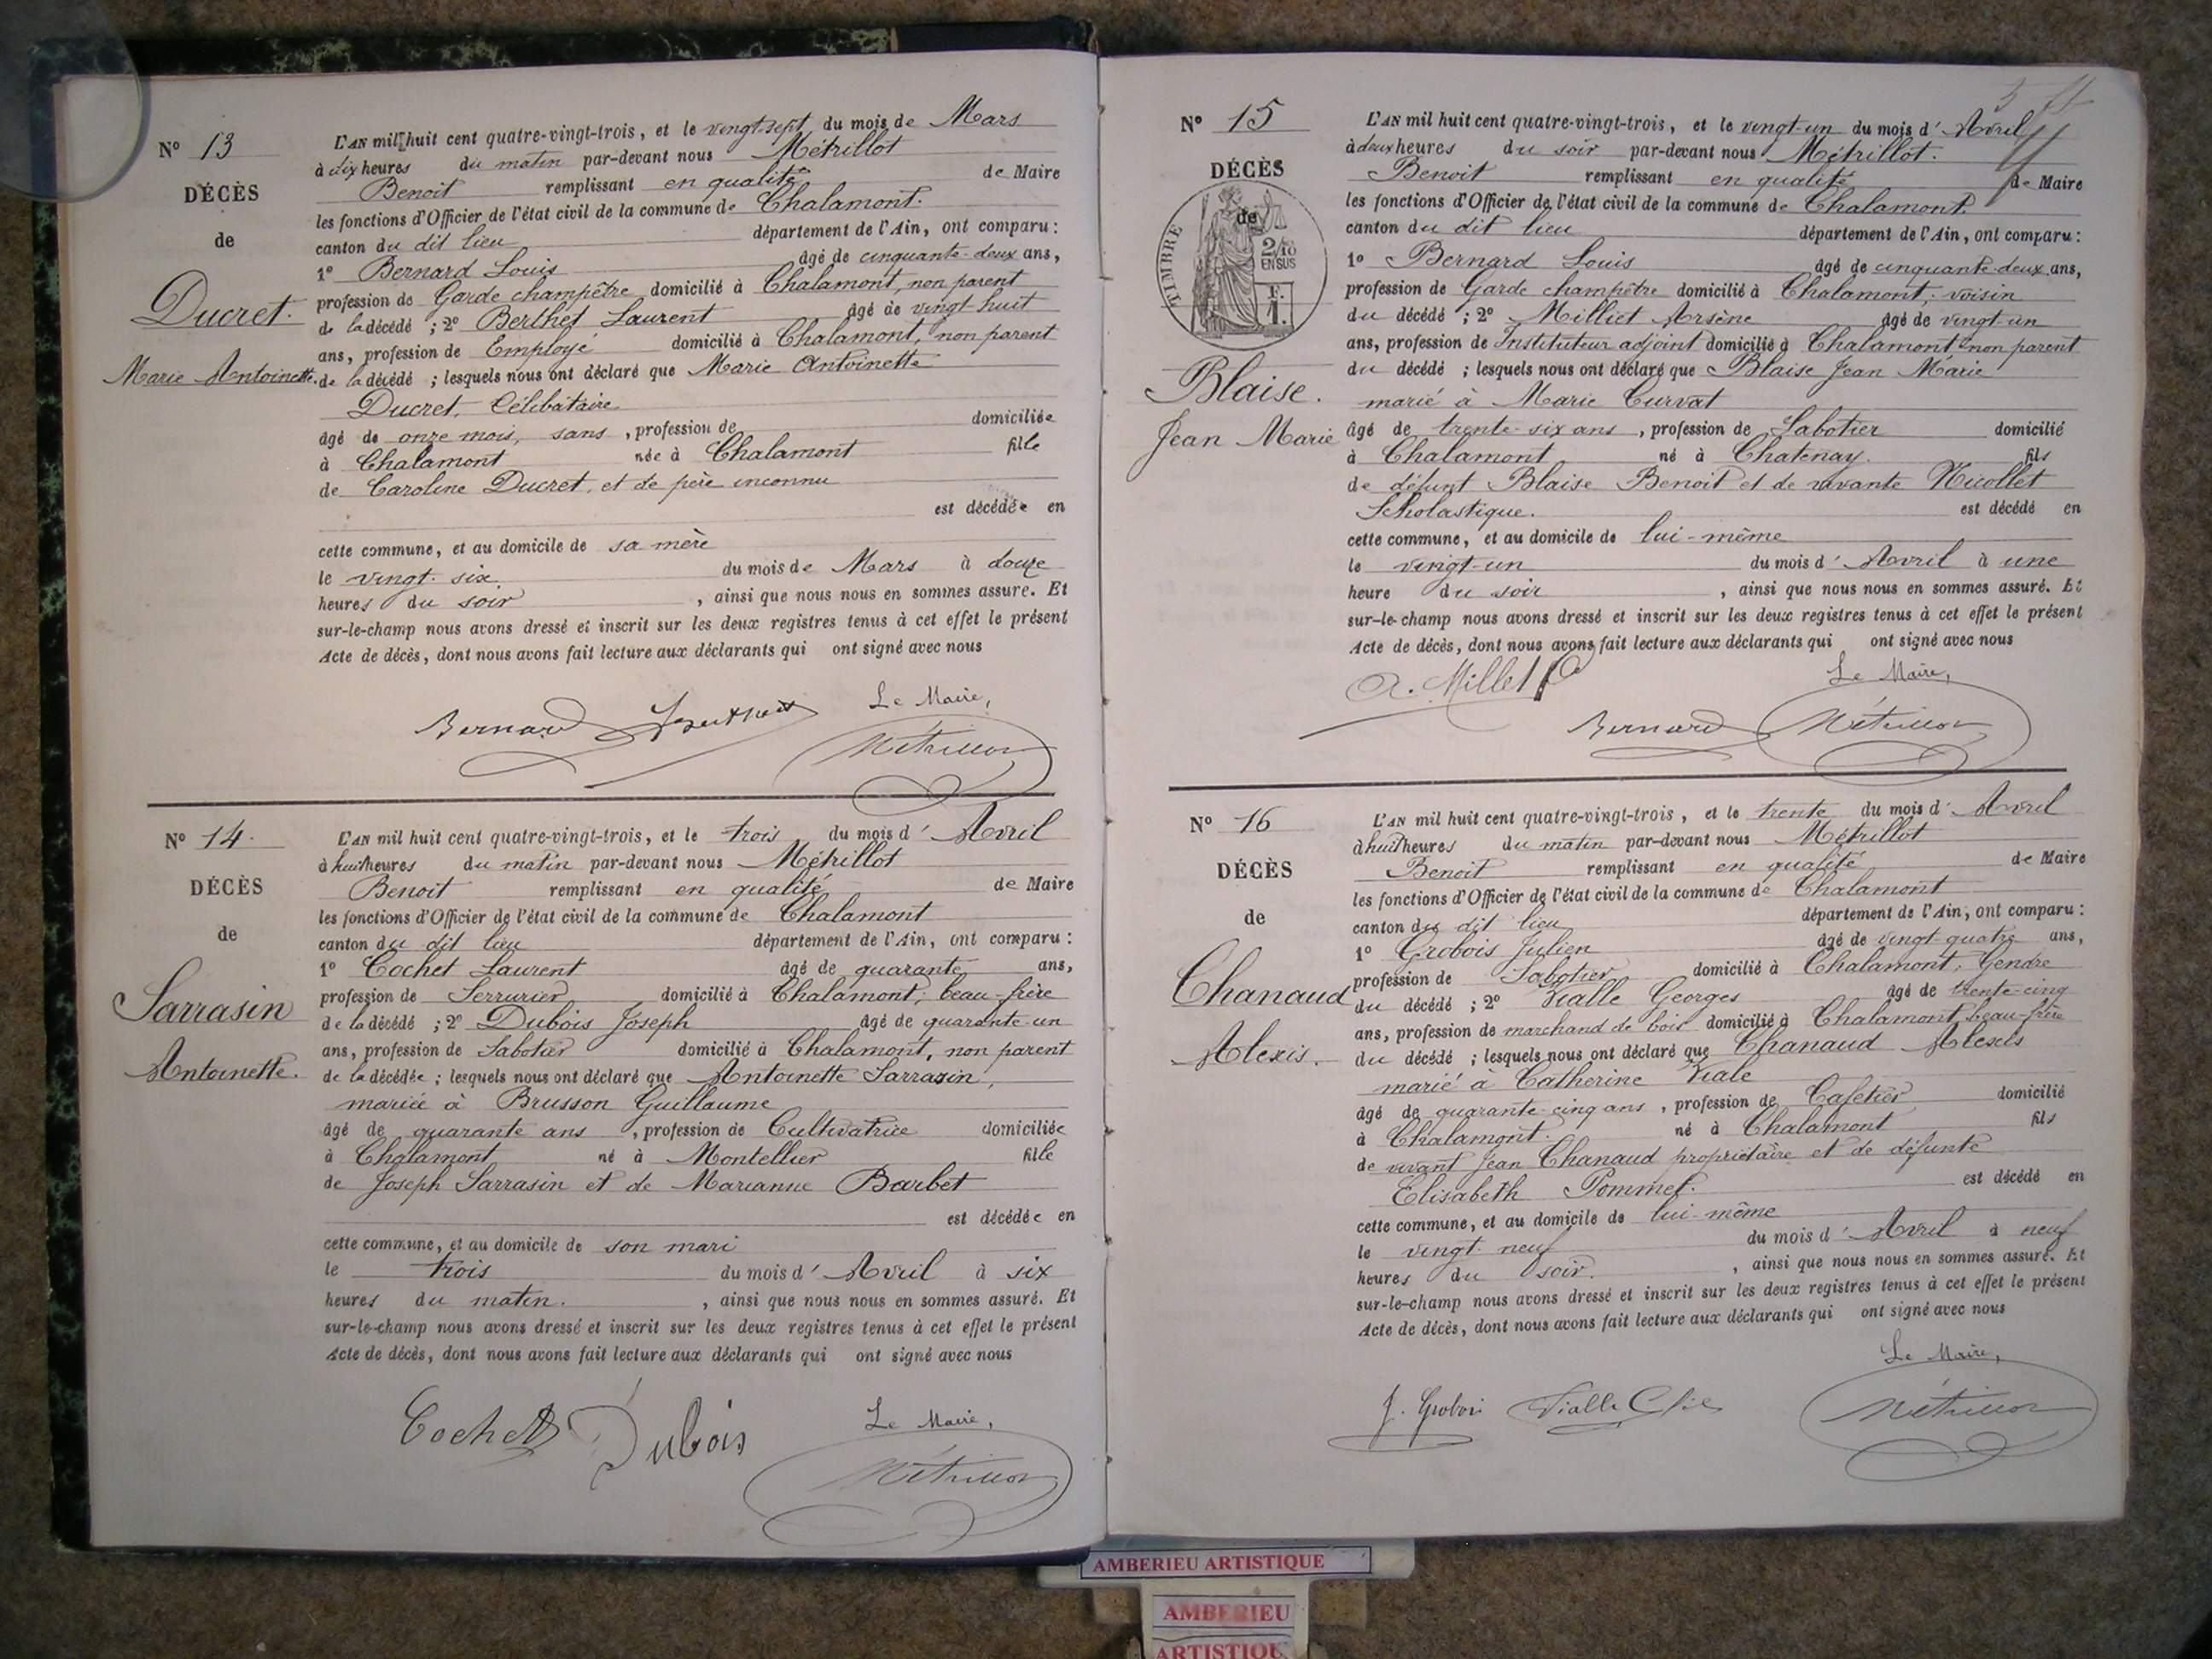 N° 13
DÉCÈS
de
Ducret.
Marie Antoinette.
L'AN mil huit cent quatre-vingt-trois, et le vingt-sept du mois de Mars
à dix heures du matin par-devant nous Métrillot
Benoit remplissant en qualité de Maire
les fonctions d'Officier de l'état civil de la commune de Chalamont.
canton du dit lieu département de l'Ain, ont comparu :
1° Bernard Louis âgé de cinquante-deux ans,
profession de Garde champêtre domicilié à Chalamont, non parent
de la décédé ; 2° Berthet Laurent âgé de vingt-huit
ans, profession de Employé domicilié à Chalamont, non parent
de la décédé ; lesquels nous ont déclaré que Marie Antoinette
Ducret, Célibataire
âgé de onze mois, sans , profession de domiciliée
à Chalamont née à Chalamont fille
de Caroline Ducret, et de père inconnu
est décédée en
cette commune, et au domicile de sa mère
le vingt-six du mois de Mars à douze
heures du soir , ainsi que nous nous en sommes assuré. Et
sur-le-champ nous avons dressé et inscrit sur les deux registres tenus à cet effet le présent
Acte de décès, dont nous avons fait lecture aux déclarants qui ont signé avec nous
Le Maire,
Bernard Berthet Métrillot
N° 14.
DÉCÈS
de
Sarrasin
Antoinette.
L'AN mil huit cent quatre-vingt-trois, et le trois du mois d' Avril
à huit heures du matin par-devant nous Métrillot
Benoit remplissant en qualité de Maire
les fonctions d'Officier de l'état civil de la commune de Chalamont
canton du dit lieu département de l'Ain, ont comparu :
1° Cochet Laurent âgé de quarante ans,
profession de Serrurier domicilié à Chalamont, beau-frère
de la décédé ; 2° Dubois Joseph âgé de quarante-un
ans, profession de Sabotier domicilié à Chalamont, non parent
de la décédée ; lesquels nous ont déclaré que Antoinette Sarrasin,
mariée à Brusson Guillaume
âgé de quarante ans , profession de Cultivatrice domiciliée
à Chalamont né à Montellier fille
de Joseph Sarrasin et de Marianne Barbet
est décédée en
cette commune, et au domicile de son mari
le trois du mois d' Avril à six
heures du matin. , ainsi que nous nous en sommes assuré. Et
sur-le-champ nous avons dressé et inscrit sur les deux registres tenus à cet effet le présent
Acte de décès, dont nous avons fait lecture aux déclarants qui ont signé avec nous
Le Maire,
Cochet Dubois Métrillot
N° 15
DÉCÈS
de
TIMBRE
2/10
EN SUS
F.
1.
Blaise.
Jean Marie
L'AN mil huit cent quatre-vingt-trois, et le vingt-un du mois d' Avril
à deux heures du soir par-devant nous Métrillot.
Benoit remplissant en qualité de Maire
les fonctions d'Officier de l'état civil de la commune de Chalamont.
canton du dit lieu département de l'Ain, ont comparu :
1° Bernard Louis âgé de cinquante-deux ans,
profession de Garde champêtre domicilié à Chalamont, voisin
du décédé ; 2° Milliet Arsène âgé de vingt-un
ans, profession de Instituteur adjoint domicilié à Chalamont non parent
du décédé ; lesquels nous ont déclaré que Blaise Jean Marie
marié à Marie Curvat
âgé de trente-six ans , profession de Sabotier domicilié
à Chalamont né à Chatenay. fils
de défunt Blaise Benoit et de vivante Nicollet
Scholastique. est décédé en
cette commune, et au domicile de lui-même
le vingt-un du mois d' Avril à une
heure du soir , ainsi que nous nous en sommes assuré. Et
sur-le-champ nous avons dressé et inscrit sur les deux registres tenus à cet effet le présent
Acte de décès, dont nous avons fait lecture aux déclarants qui ont signé avec nous
Le Maire,
A. Millet
Bernard Métrillot
N° 16
DÉCÈS
de
Chanaud
Alexis.
L'AN mil huit cent quatre-vingt-trois, et le trente du mois d' Avril
à huit heures du matin par-devant nous Métrillot
Benoit remplissant en qualité de Maire
les fonctions d'Officier de l'état civil de la commune de Chalamont
canton du dit lieu département de l'Ain, ont comparu :
1° Grobois Julien âgé de vingt-quatre ans,
profession de Sabotier domicilié à Chalamont, Gendre
du décédé ; 2° Vialle Georges âgé de trente-cinq
ans, profession de marchand de bois domicilié à Chalamont, beau-frère
du décédé ; lesquels nous ont déclaré que Chanaud Alexis
marié à Catherine Viale
âgé de quarante-cinq ans , profession de Cafetier domicilié
à Chalamont. né à Chalamont fils
de vivant Jean Chanaud propriétaire et de défunte
Elisabeth Pommet. est décédé en
cette commune, et au domicile de lui-même
le vingt-neuf du mois d' Avril à neuf
heures du soir. , ainsi que nous nous en sommes assuré. Et
sur-le-champ nous avons dressé et inscrit sur les deux registres tenus à cet effet le présent
Acte de décès, dont nous avons fait lecture aux déclarants qui ont signé avec nous
Le Maire,
J. Grobois Vialle Métrillot
AMBERIEU ARTISTIQUE
AMBERIEU
ARTISTIQUE